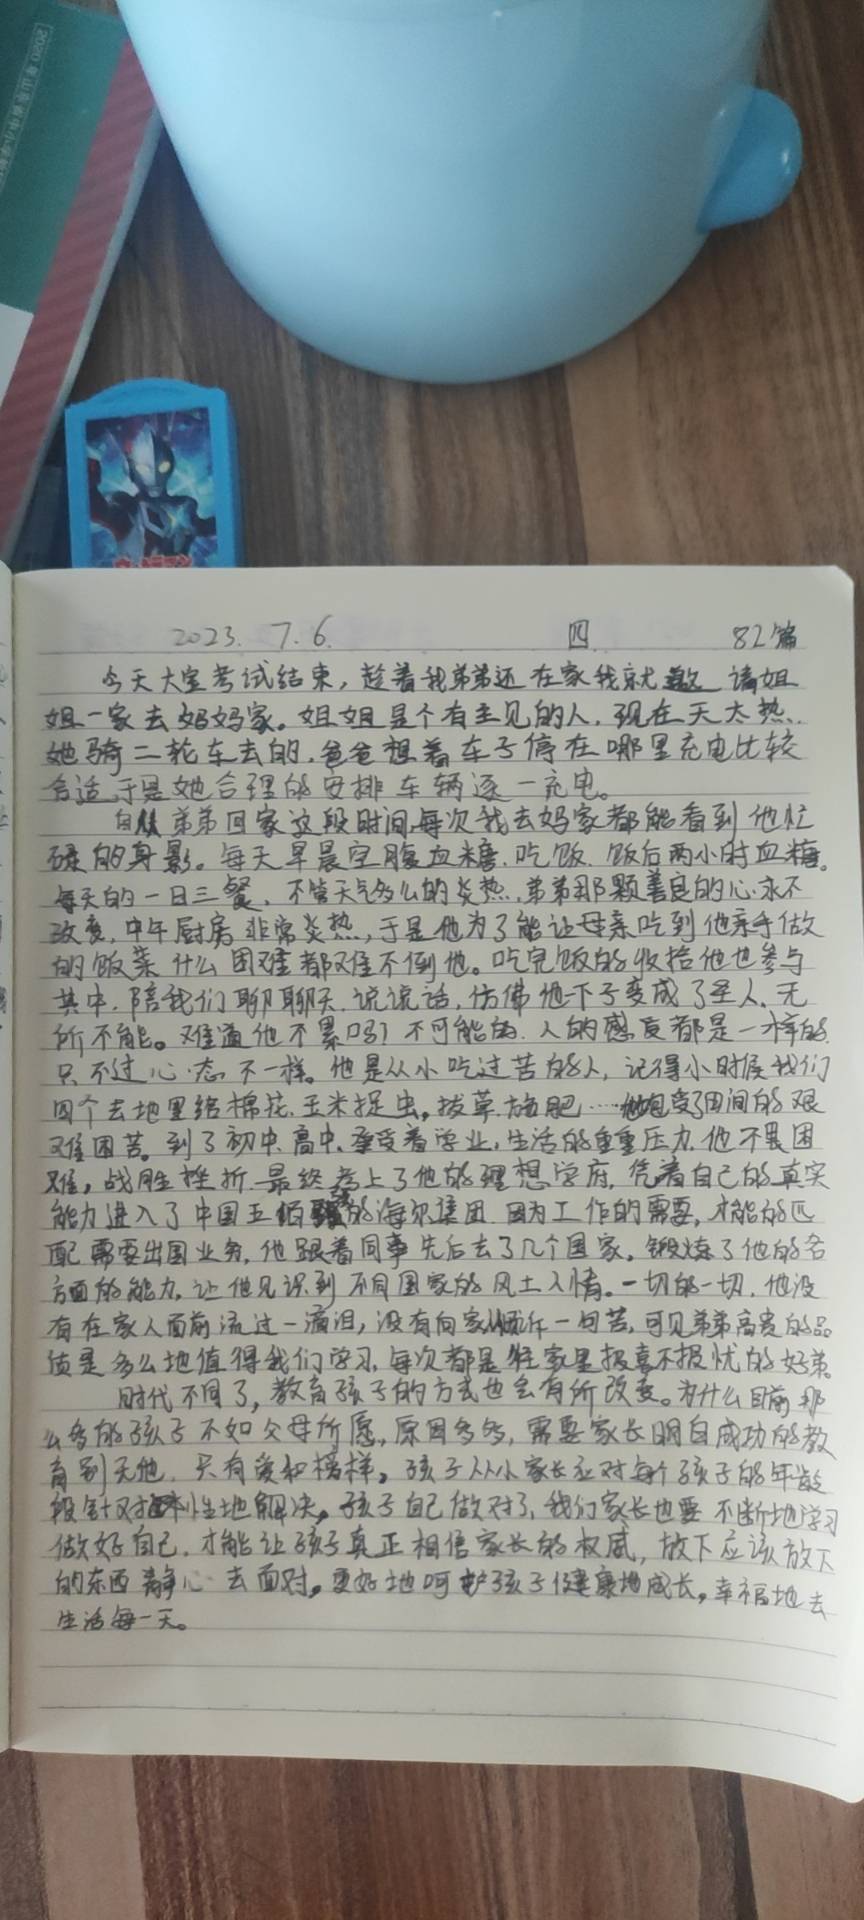 2023.7.6. 四 82篇
今天大宝考试结束，趁着我弟弟还在家我就邀请姐
姐一家去妈妈家。姐姐是个有主见的人，现在天太热，
她骑二轮车去的，爸爸想着车子停在哪里充电比较
合适，于是她合理的安排车辆逐一充电。
自从弟弟回家这段时间，每次我去妈家都能看到他忙
碌的身影。每天早晨空腹血糖、吃饭、饭后两小时血糖。
每天的一日三餐，不管天气多么的炎热，弟弟那颗善良的心永不
改变，中午厨房非常炎热，于是他为了能让母亲吃到他亲手做
的饭菜什么困难都难不倒他。吃完饭的收拾他也参与
其中，陪我们聊聊天，说说话，仿佛他一下子变成了圣人，无
所不能。难道他不累吗？不可能的，人的感受都是一样的，
只不过心态不一样。他是从小吃过苦的人，记得小时候我们
四个去地里给棉花、玉米捉虫，拔草、施肥……他包受了田间的艰
难困苦。到了初中、高中，承受着学业，生活的重重压力，他不畏困
难，战胜挫折，最终考上了他的理想学府，凭着自己的真实
能力进入了中国五佰强的海尔集团，因为工作的需要，才能的匹
配需要出国业务，他跟着同事先后去了几个国家，锻炼了他的各
方面的能力，让他见识到不同国家的风土人情。一切的一切，他没
有在家人面前流过一滴泪，没有向家倾诉一句苦，可见弟弟高贵的品
质是多么地值得我们学习，每次都是往家里报喜不报忧的好弟。
时代不同了，教育孩子的方式也会有所改变。为什么目前那
么多的孩子不如父母所愿，原因多多，需要家长明白成功的教
育别无他，只有爱和榜样。孩子从小家长应对每个孩子的年龄
段针对性地解决。孩子自己做对了，我们家长也要不断地学习
做好自己，才能让孩子真正相信家长的权威，放下应该放下
的东西静心去面对。更好地呵护孩子健康地成长，幸福地去
生活每一天。